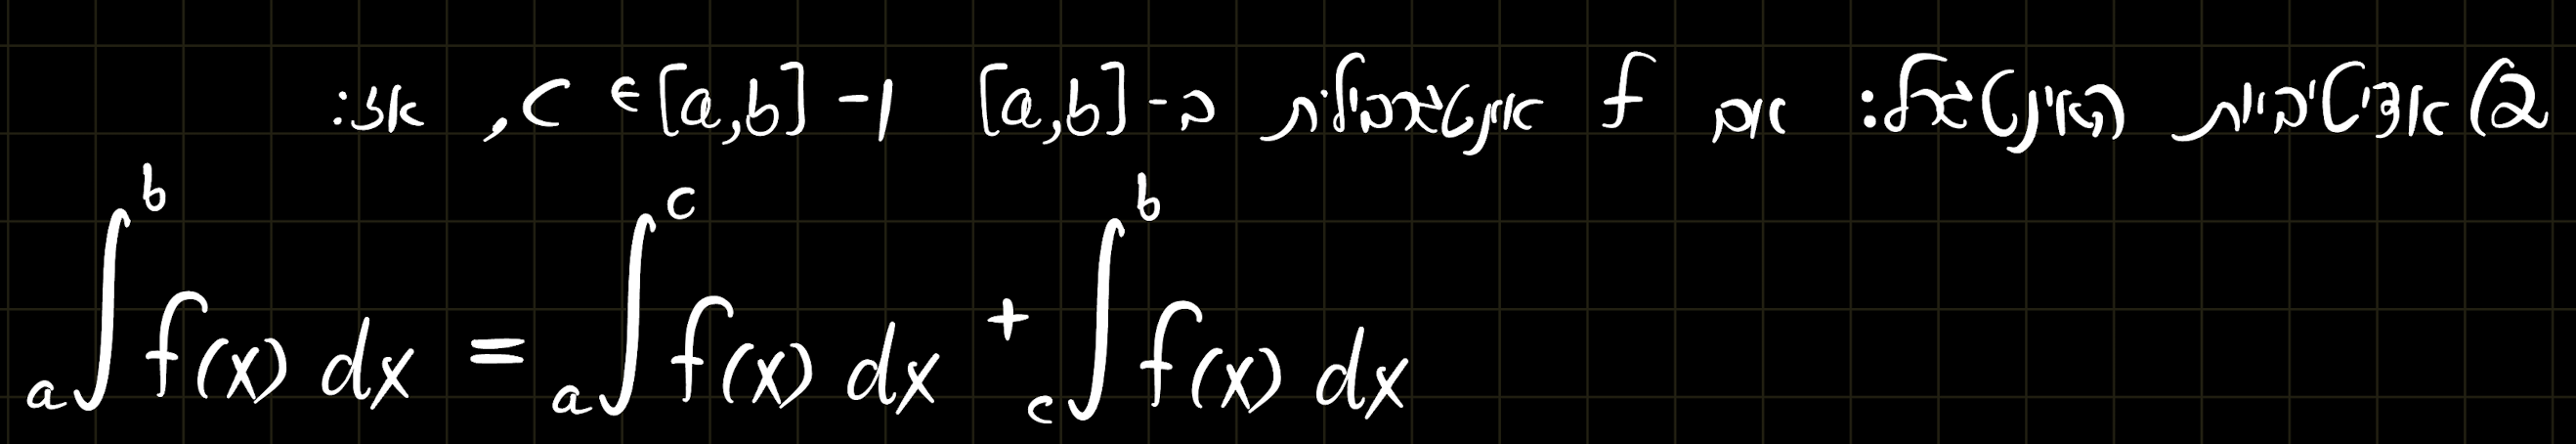 2) אדיטיביות האינטגרל: אם f אינטגרבילית ב-[a,b] ו-c ∈ [a,b], אז:
∫_a^b f(x) dx = ∫_a^c f(x) dx + ∫_c^b f(x) dx